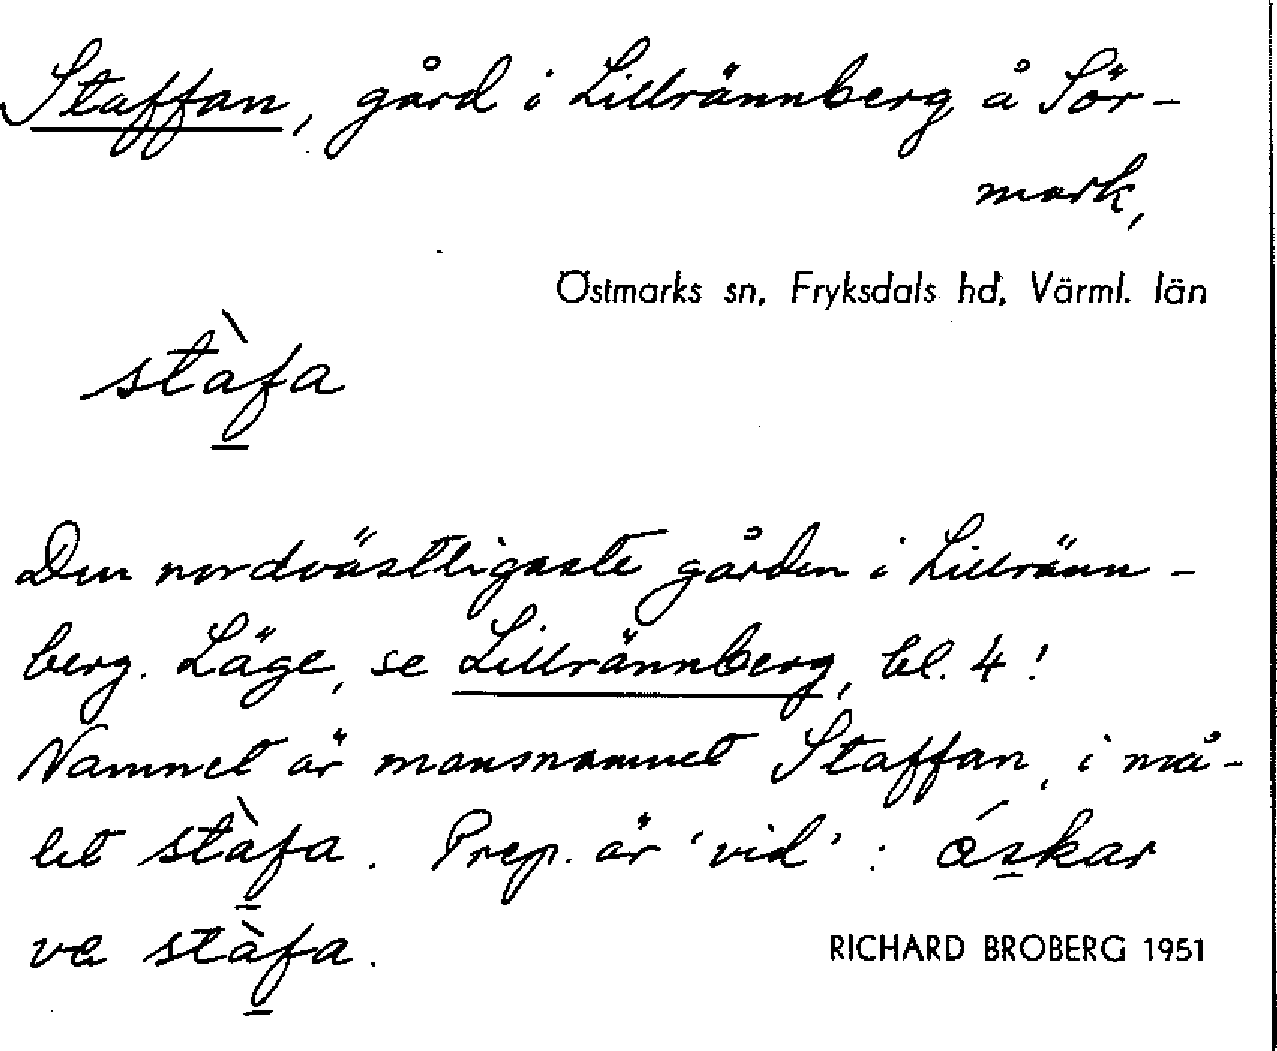 Staffan, gård i Lillrännberg å Sör-
mark,
Östmarks sn, Fryksdals hd, Värml. län
stàfa
Den nordvästligaste gården i Lillränn-
berg. Läge, se Lillrännberg, bl. 4!
Namnet är mansnamnet Staffan, i må-
let stàfa. Prep. är 'vid': óskar
ve stàfa.
RICHARD BROBERG 1951